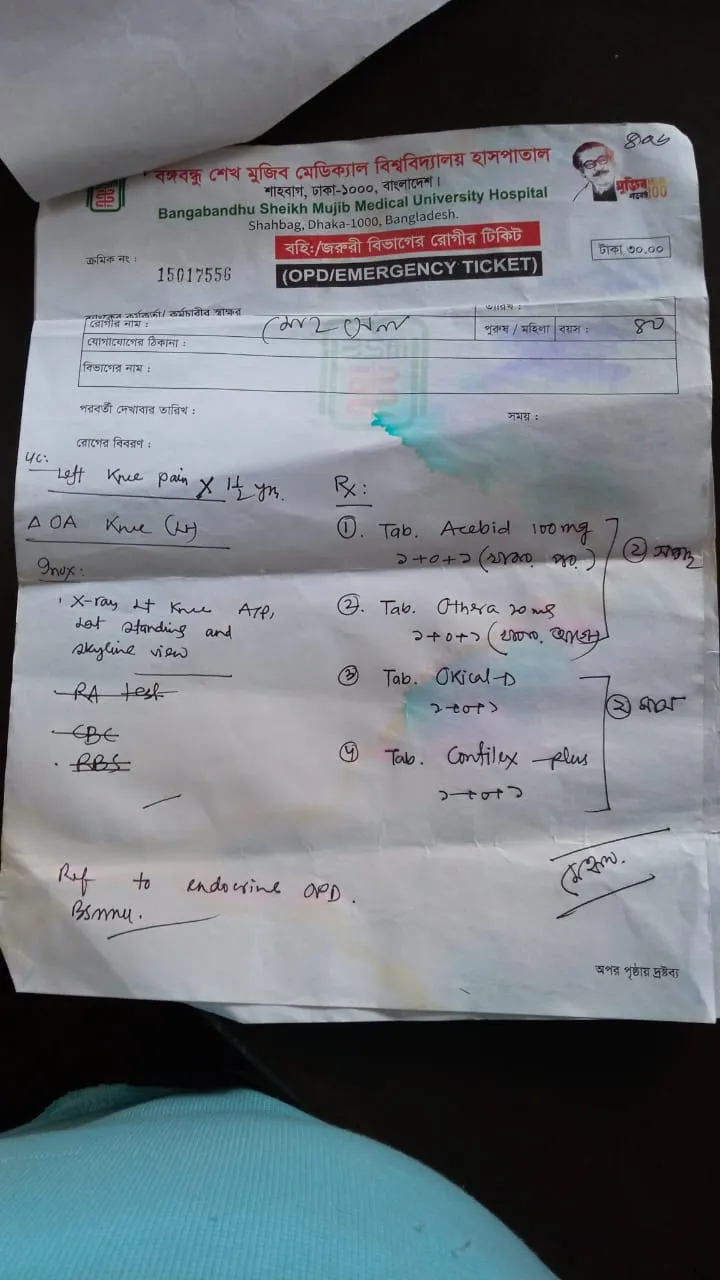 ৪০১
বঙ্গবন্ধু শেখ মুজিব মেডিক্যাল বিশ্ববিদ্যালয় হাসপাতাল
শাহবাগ, ঢাকা-১০০০, বাংলাদেশ।
Bangabandhu Sheikh Mujib Medical University Hospital
Shahbag, Dhaka-1000, Bangladesh.
মুজিব শতবর্ষ 100
বহিঃ/জরুরী বিভাগের রোগীর টিকিট
টাকা ৩০.০০
(OPD/EMERGENCY TICKET)
ক্রমিক নং :
15017556
তারিখ :
রোগীর নাম :
পুরুষ / মহিলা বয়স : ৪০
যোগাযোগের ঠিকানা :
বিভাগের নাম :
পরবর্তী দেখাবার তারিখ :
সময় :
রোগের বিবরণ :
Left Knee pain X 1½ yrs.
Δ OA Knee (Lt)
Invx:
X-ray Lt Knee A/P,
Lat standing and
skyline view
RA test
CBC
RBS
Rx:
①. Tab. Acebid 100 mg
১+০+১ (খাবার পর)
② সপ্তাহ
②. Tab. Othera 20 mg
১+০+১ (খাবার আগে)
③ Tab. Okical-D
১+০+১
② মাস
④ Tab. Contilex plus
১+০+১
Ref to endocrine OPD.
BSMMU.
অপর পৃষ্ঠায় দ্রষ্টব্য